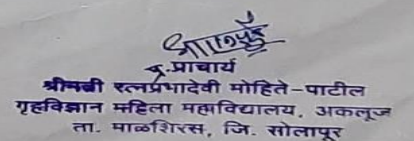 प्र.प्राचार्य
श्रीमती रत्नप्रभादेवी मोहिते-पाटील
गृहविज्ञान महिला महाविद्यालय, अकलूज
ता. माळशिरस, जि. सोलापूर